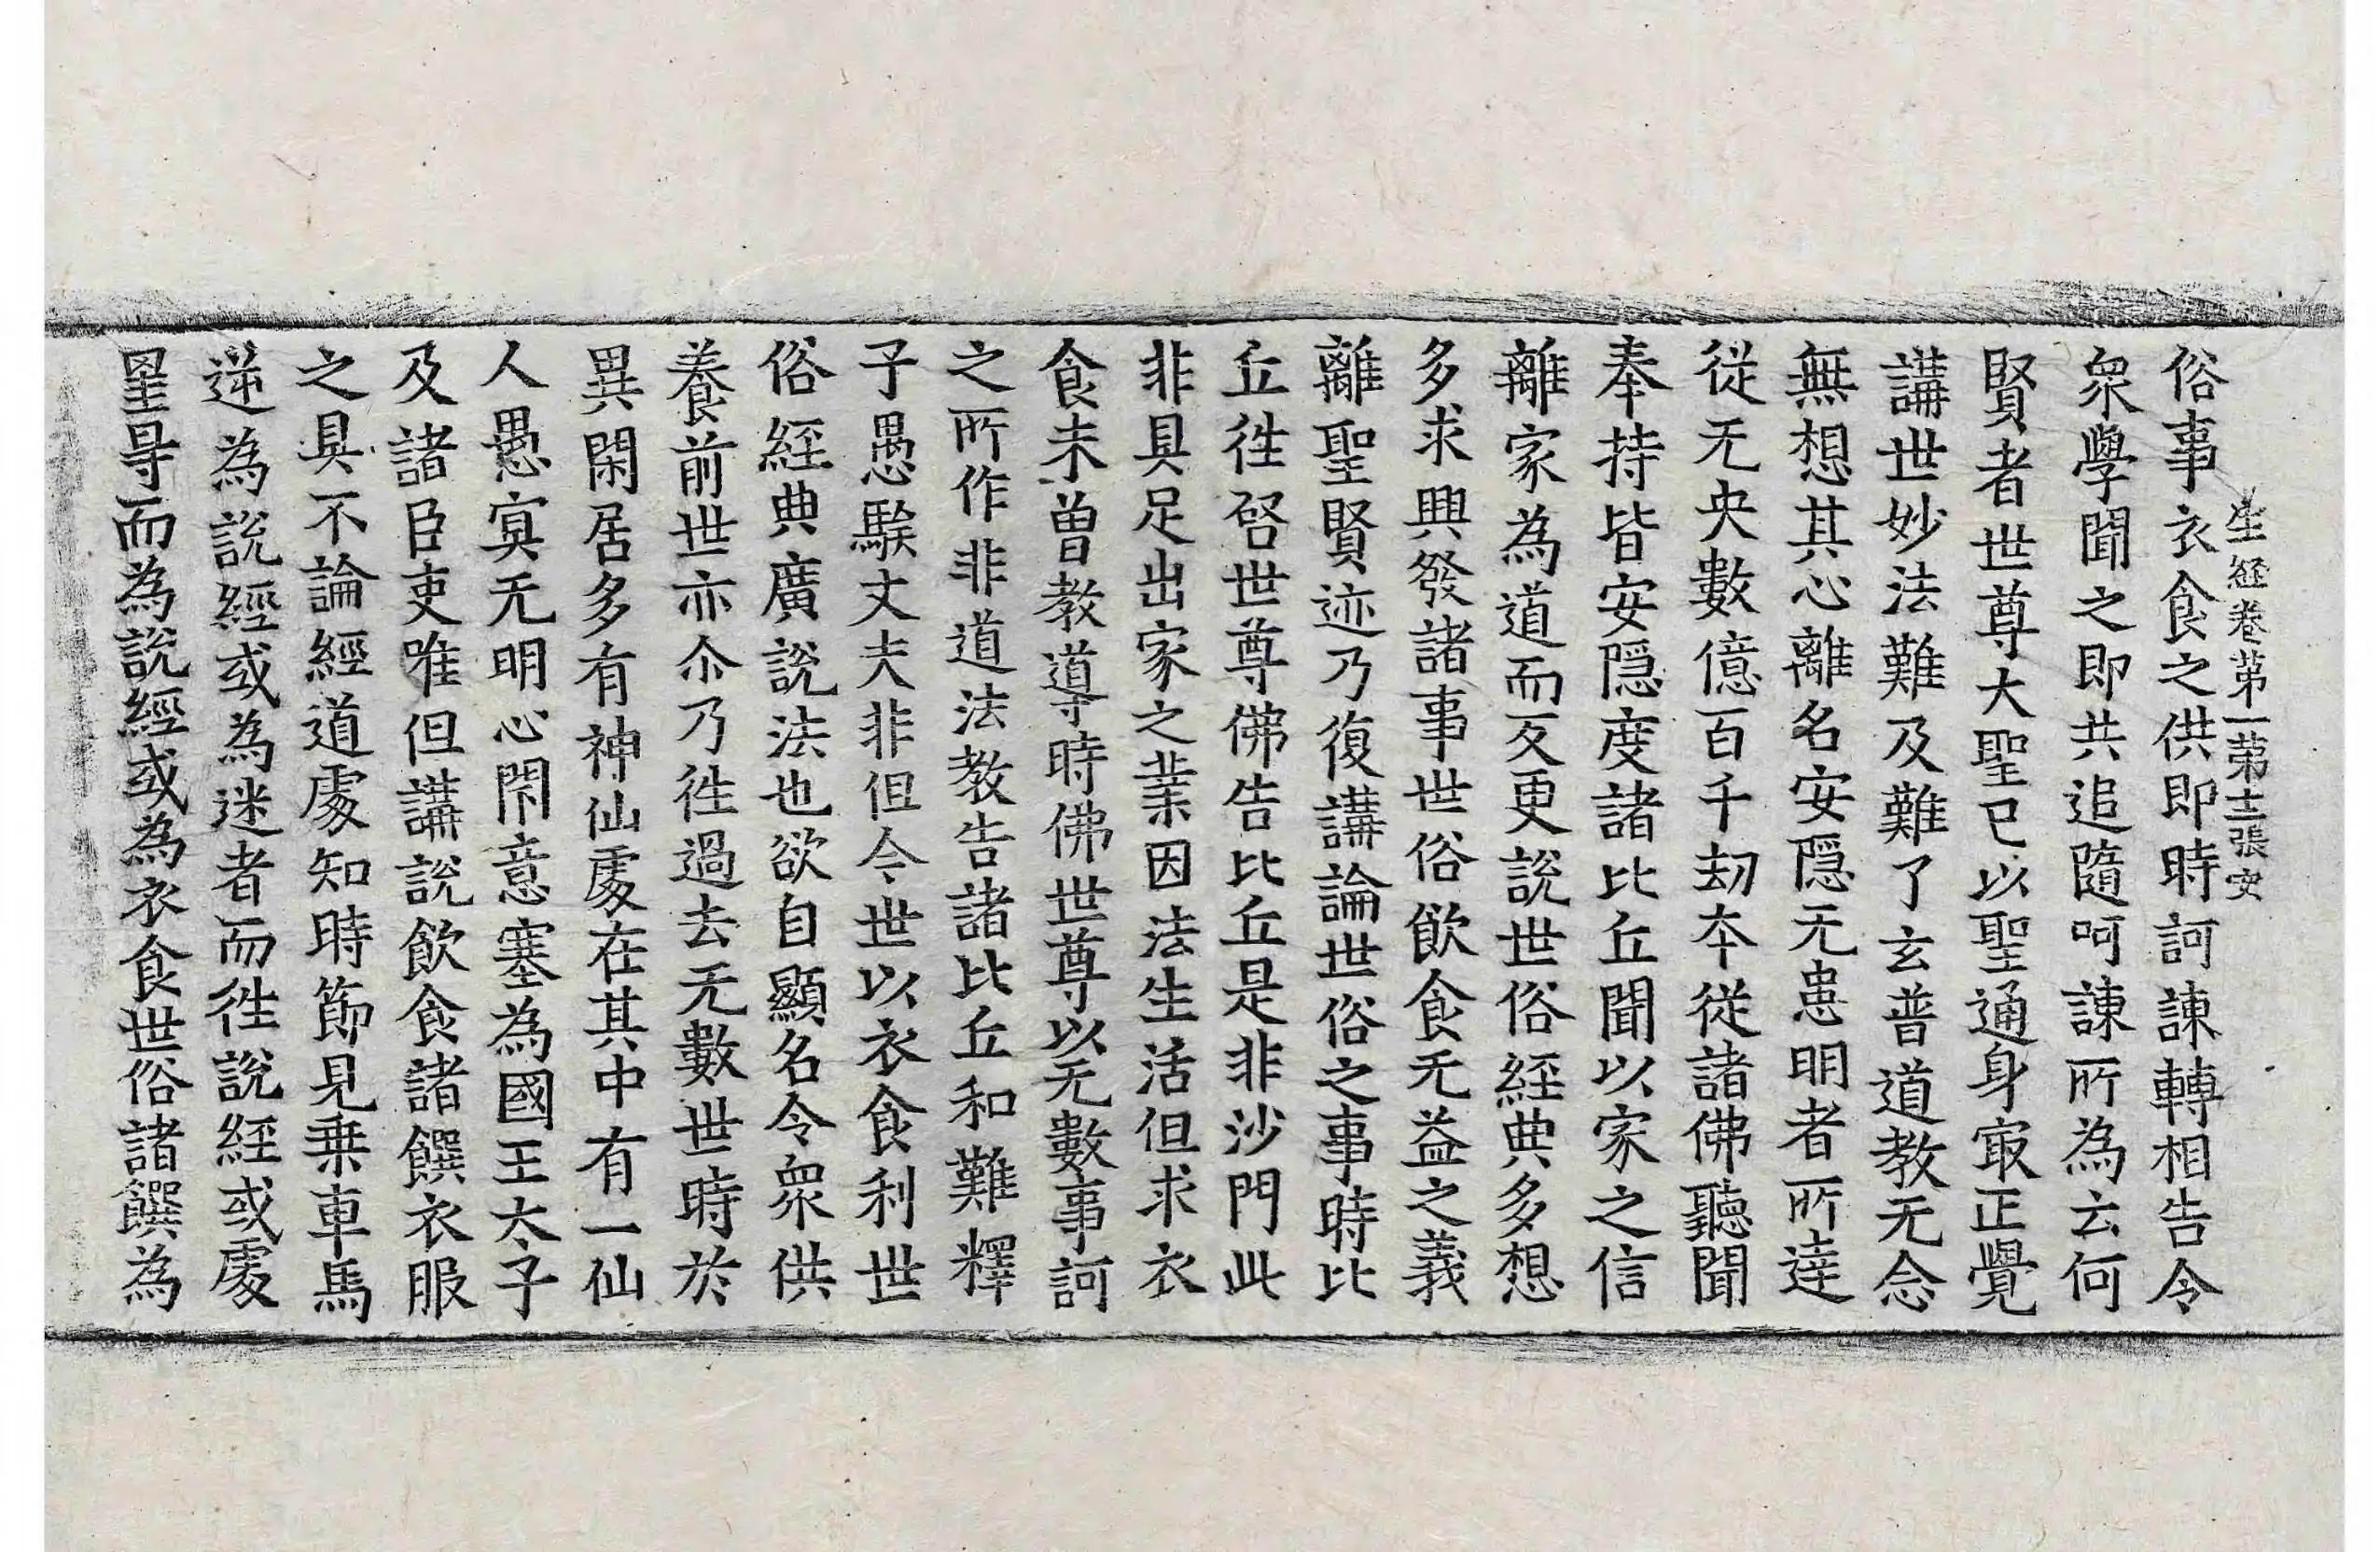 生經卷第一第十二張安
俗事衣食之供即時訶諫轉相告令
衆學聞之即共追隨呵諫所為云何
賢者世尊大聖已以聖通身㝡正覺
講世妙法難及難了玄普道教无念
無想其心離名安隱无患明者所達
從无央數億百千劫本從諸佛聽聞
奉持皆安隱度諸比丘聞以家之信
離家為道而反更說世俗經典多想
多求興發諸事世俗飲食无益之義
離聖賢迹乃復講論世俗之事時比
丘往啓世尊佛告比丘是非沙門此
非具足出家之業因法生活但求衣
食未曽教導時佛世尊以无數事訶
之所作非道法教告諸比丘和難釋
子愚騃丈夫非但今世以衣食利世
俗經典廣說法也欲自顯名令衆供
養前世亦尒乃往過去无數世時於
異閑居多有神仙處在其中有一仙
人愚㝠无明心閇意塞為國王太子
及諸臣吏唯但講說飲食諸饌衣服
之具不論經道處知時節見乗車馬
逆為說經或為迷者而往說經或處
罣㝵而為說經或為衣食世俗諸饌為